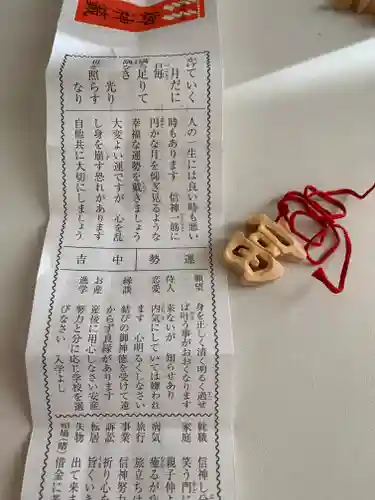 御神籤
かけていく
月だに
足りて
光り
照らす
なり
人の一生には良い時も悪い
時もあります　信神一筋に
円かな月を仰ぎ見るような
幸福な運勢を戴きましょう
大変よい運ですが　心を乱
し身を崩す恐れがあります
自他共に大切にしましょう
運勢　中吉
願望　身を正しく清く明るく過せ
ば叶う事がおおくなります
待人　来ないが　知らせあり
恋愛　内気にしていては嫌われ
ます　心明るくしなさい
縁談　結びの御神徳を受けて遠
からず良縁があります
お産　産後に用心しなさい安産
進学　努力と分に応じ学校を選
びなさい　入学よし
就職　信神し
家庭　笑う門に
親子仲
病気　癒るが
旅行　旅立ちは
事業　信神努
訴訟　祈り心
転居　旨くいき
失物　出て来
相場　借金に